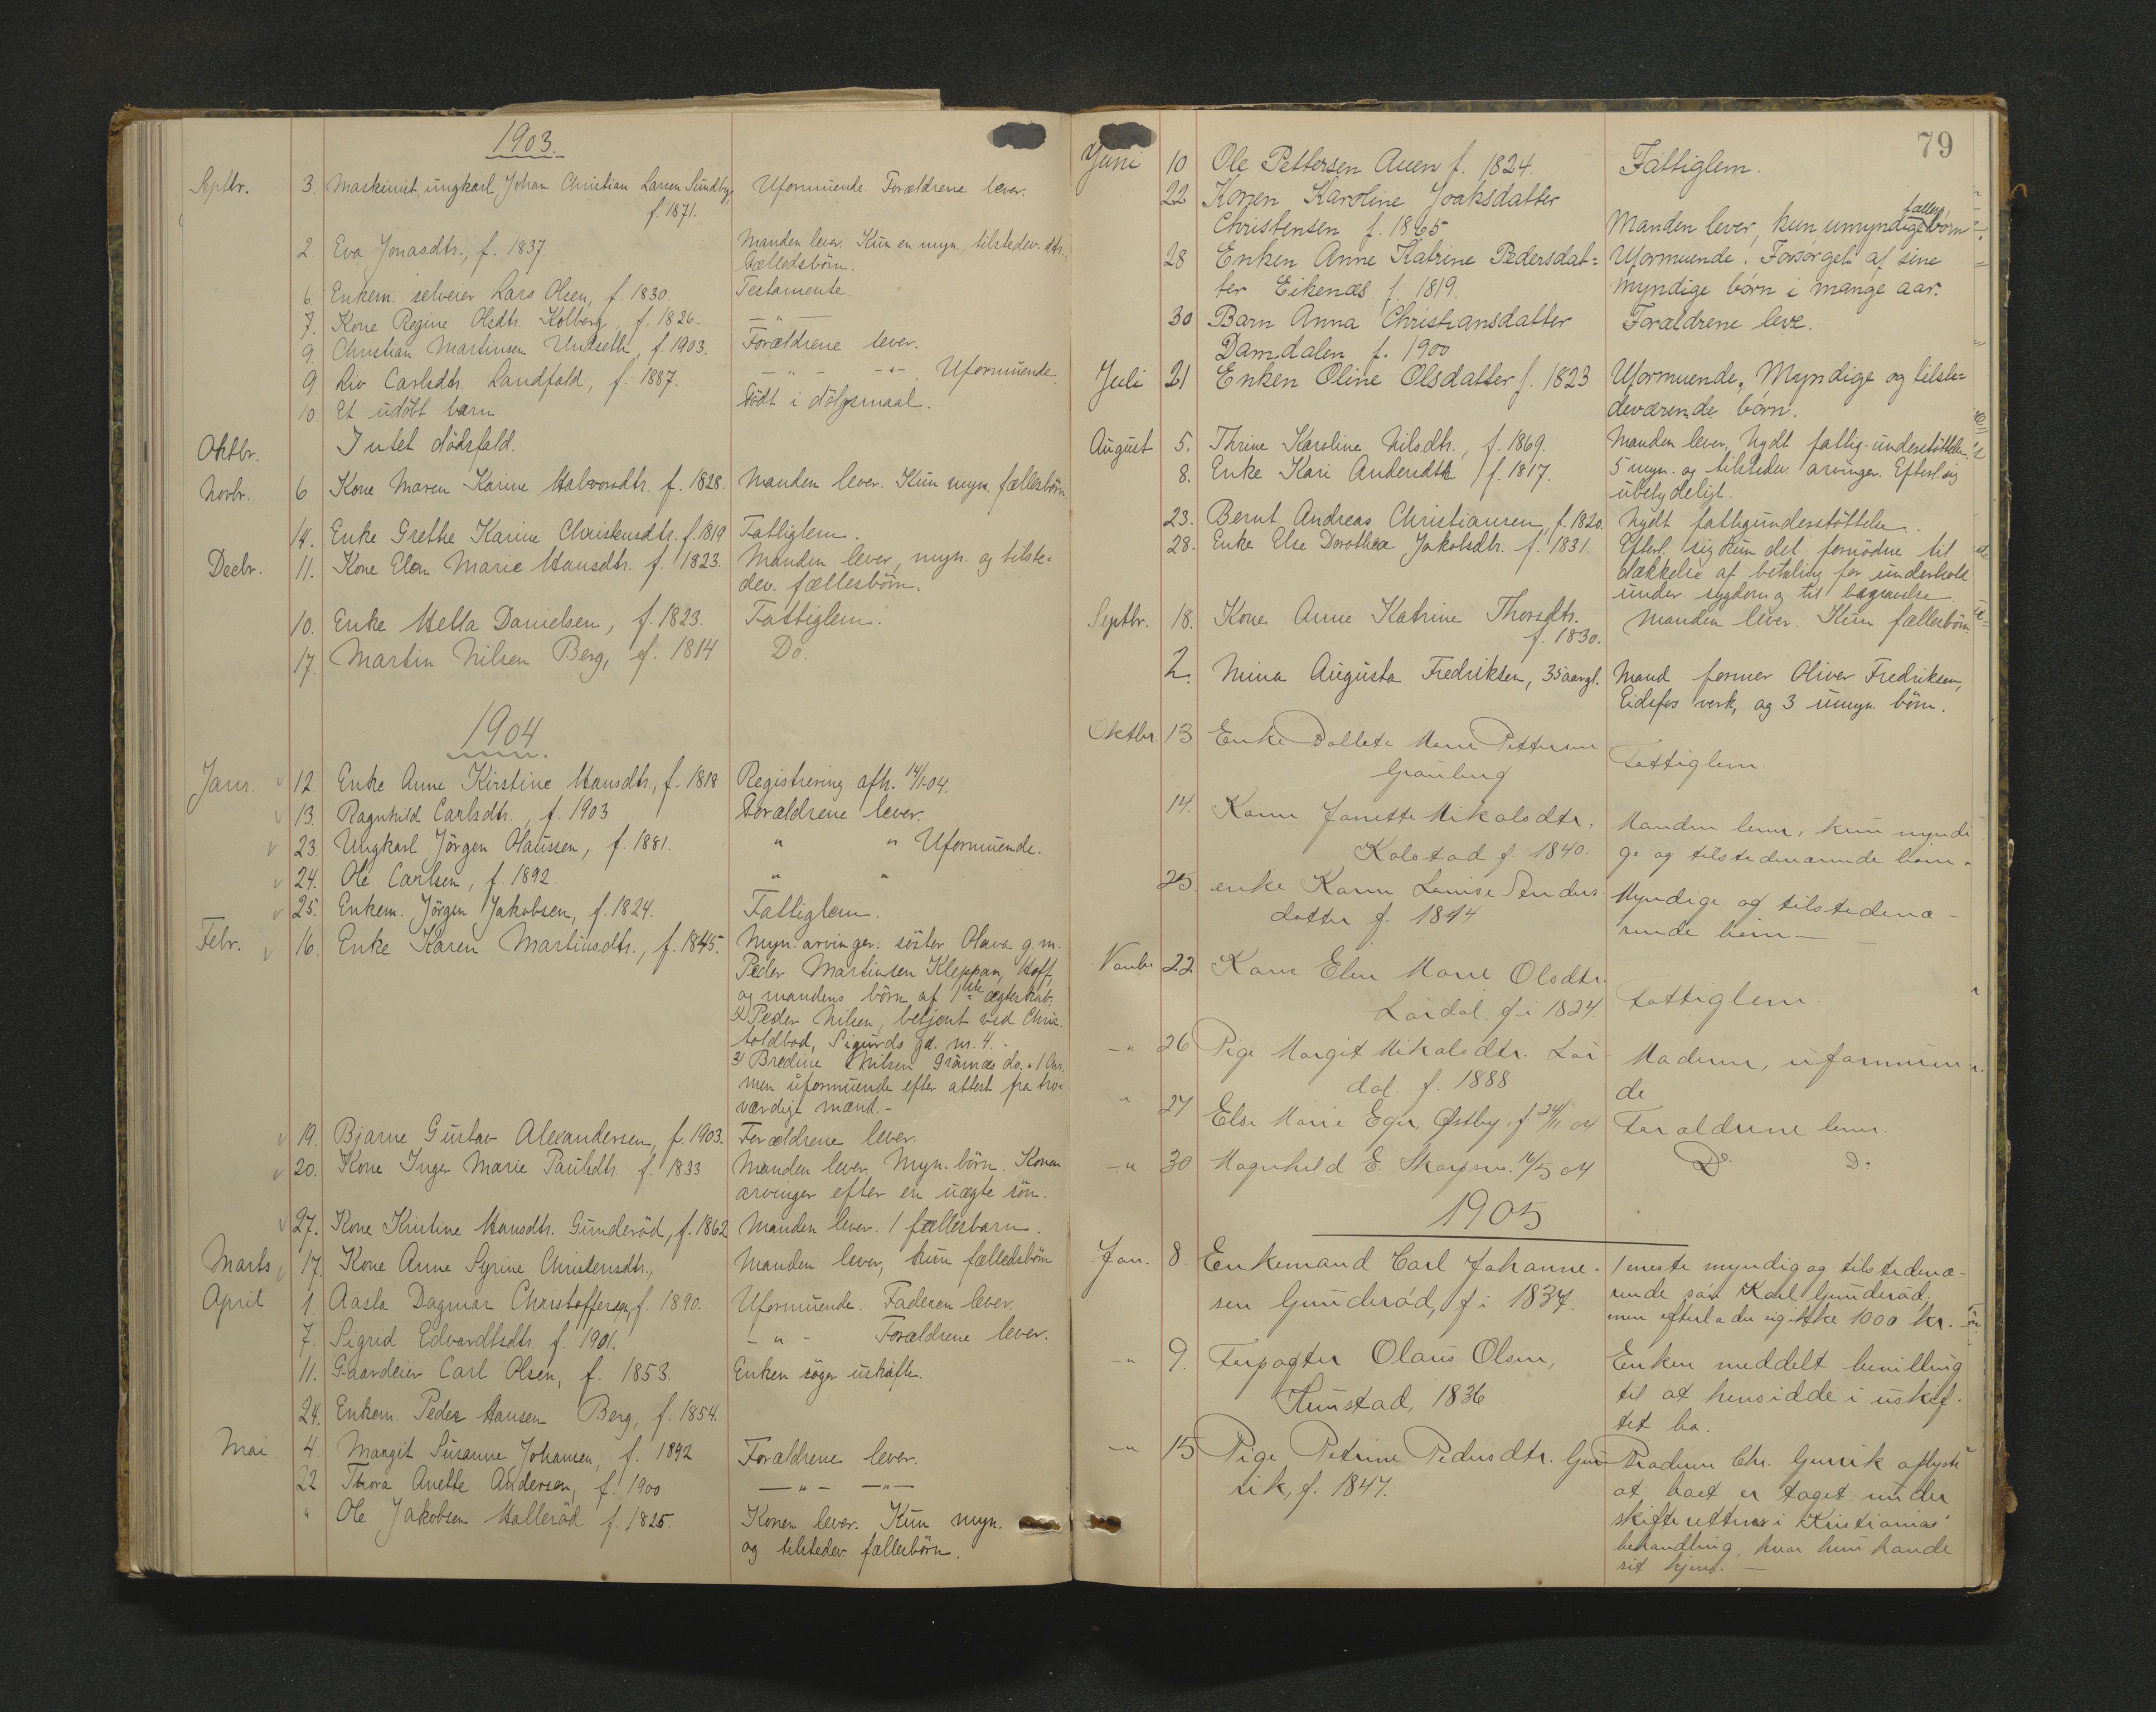 1903.
Septbr. 3. Maskinist ungkarl Johan Christian Larsen Sundby, Uformuende. Forældrene lever.
f. 1871.
2. Eva Jonasdtr., f. 1837 Manden lever. Kun en myn., tilstedev. dtr.,
fælledsbörn.
6. Enkem. selveier Lars Olsen, f. 1830. Testamente.
7. Kone Regine Olsdtr. Kolberg, f. 1826. — " —
9. Christian Martinsen Undseth, f. 1903. Forældrene lever.
9. Liv Carlsdtr. Landfald, f. 1887. — " — -"- Uformuende.
10. Et udöbt barn Födt i dölgsmaal.
Oktbr. Intet dödsfald.
Novbr. 6 Kone Maren Karine Halvorsdtr. f. 1828. Manden lever. Kun myn. fællesbörn.
14. Enke Grethe Karine Christensdtr. f. 1819 Fattiglem.
Decbr. 11. Kone Elen Marie Hansdtr. f. 1823. Manden lever, myn. og tilste-
dev. fællesbörn.
10. Enke Mella Danielsen, f. 1823. Fattiglem.
17. Martin Nilsen Berg, f. 1814 Do.
1904
Janr. 12. Enke Anne Kirstine Hansdtr., f. 1818 Registrering afh. 14/1-04.
13. Ragnhild Carlsdtr., f. 1903 Forældrene lever.
23. Ungkarl Jörgen Olaussen, f. 1881. " " Uformuende.
24. Ole Carlsen, f. 1892. " "
25. Enkem. Jörgen Jakobsen, f. 1824. Fattiglem.
Febr. 16. Enke Karen Martinsdtr., f. 1845. Myn. arvinger: söster Olava g. m.
Peder Martinsen Kleppan, Hoff,
og mandens börn af 1ste ægteskab:
Peder Nilsen, betjent ved Chria.
toldbod, Sigurds gd. nr. 4. -
2) Bredine Nilsen Grönnes do.
men uformuende efter attest fra tro-
værdige mænd. -
19. Bjarne Gustav Alexandersen, f. 1903. Forældrene lever.
20. Kone Inger Marie Paulsdtr. f. 1833 Manden lever. Myn. börn. Konen
arvinger efter en uægte sön.
27. Kone Kristine Hansdtr. Gunderöd, f. 1862 Manden lever. 1 fællesbarn.
Marts 17. Kone Anne Syrine Christensdtr., Manden lever, kun fælledsbörn
April 1. Aasta Dagmar Christoffersen, f. 1890. Uformuende. Faderen lever.
7. Sigrid Edvardtsdtr. f. 1901. - " - Forældrene lever.
11. Gaardeier Carl Olsen, f. 1853. Enken söger uskifte.
24. Enkem. Peder Hansen Berg, f. 1854.
Mai 4 Margit Susanne Johansen, f. 1892 Forældrene lever.
22 Thora Anette Andersen, f. 1900 — " — — " —
" Ole Jakobsen Halleröd f. 1825. Konen lever. Kun myn.
og tilstedev. fællesbörn.
79
Juni 10 Ole Pettersen Auen f. 1824. Fattiglem.
22 Konen Karoline Joaksdatter
Christensen f. 1865 Manden lever, kun umyndige fælles börn
28 Enken Anne Katrine Pedersdat= Uformuende. Forsörget af sine
ter Eikenæs f. 1819. myndige börn i mange aar.
30 Barn Anna Christiansdatter Forældrene leve.
Damdalen f. 1900
Juli 21 Enken Oline Olsdatter f. 1823 Uformuende. Myndige og tilste=
deværende börn.
August 5. Thrine Karoline Nilsdtr., f. 1869. Manden lever, Nydt fattig-understöttelse.
8. Enke Kari Andersdtr. f. 1817. 5 myn. og tilstedev. arvinger. Efterl. sig
ubetydeligt.
23. Bernt Andreas Christiansen, f. 1820. Nydt fattigunderstöttelse.
28. Enke Else Dorothea Jakobsdtr. f. 1831. Efterl. sig kun det fornödne til
dækkelse af betaling for underhold
under sygdom og til begravelse.
Septbr. 18. Kone Anne Katrine Thorsdtr. Manden lever. Kun fællesbörn.
f. 1830.
2. Mina Augusta Fredriksen, 35 aargl. Mand former Oliver Fredriksen,
Eidsfos verk, og 3 umyn. börn.
Oktbr. 13 Enke Marie Pettersen Fattiglem.
14. Kone Janette Nikolsdtr. Manden lever, kun myndi
Kolstad f. 1840. ge og tilstedeværende børn.
25. enke Karen Lovise Anders- Myndige og tilstedevæ-
datter f. 1844 rende børn —
Novbr 22 Kone Elen Marie Olsdtr. Fattiglem.
Lördal. f. i 1824.
—"— 26 Pige Margit Nikolsdtr. Lör- Moderen, uformuen
dal f. 1888 de
" 27 Else Marie Eger, Østby, f. 24/1 04 Forældrene lever.
—"— 30 Magnhild E. 16/5 04 Do. Do.
1905
Jan. 8. Enkemand Carl Johanne- 1 eneste myndig og tilstedevæ-
sen Gunderöd, f. i 1837. rende sön Karl Gunderöd,
men efterlader sig ikke 1000 kr.
—"— 9. Forpagter Olaus Olsen, Enken meddelt bevilling
Hunstad, 1836 til at hensidde i uskif-
tet bo.
—"— 15 Pige Petrine Pedersdtr. Broderen Chr. oplyste
f. 1847. at boet er taget under
skifterettens i Kristianias
behandling, hvor hun havde
sit hjem. —